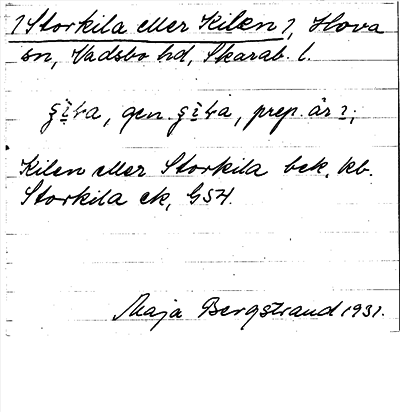 ? Storkila eller Kilen ?, Hova
sn, Vadsbo hd, Skarab. l.
gen. prep. är ?;
Kilen eller Storkila bek. kb.
Storkila ek, GSH.
Maja Bergstrand 1931.